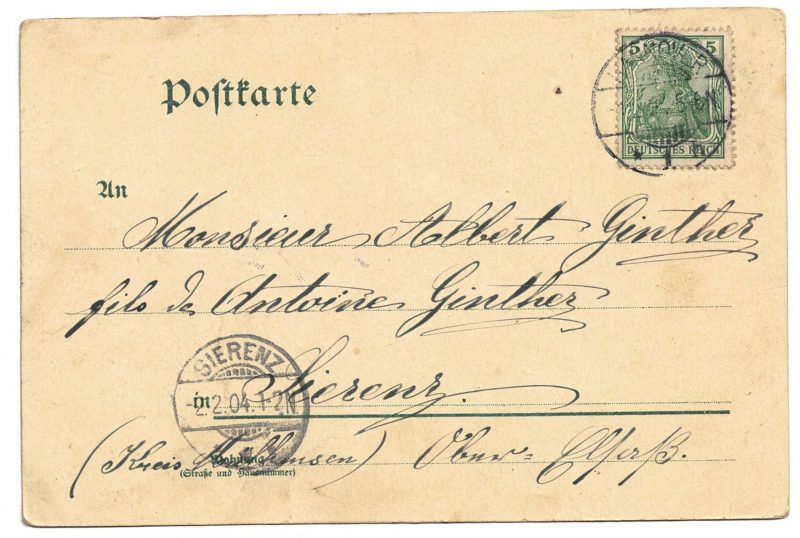 5 5
HANNOVER
DEUTSCHES REICH
* 1
Postkarte
An
Monsieur Albert Ginther
fils de Antoine Ginther
SIERENZ
2.2.04.1-2N
in Sierenz.
(Kreis Mülhausen) Ober-Elsaß.
Wohnung
(Straße und Hausnummer)